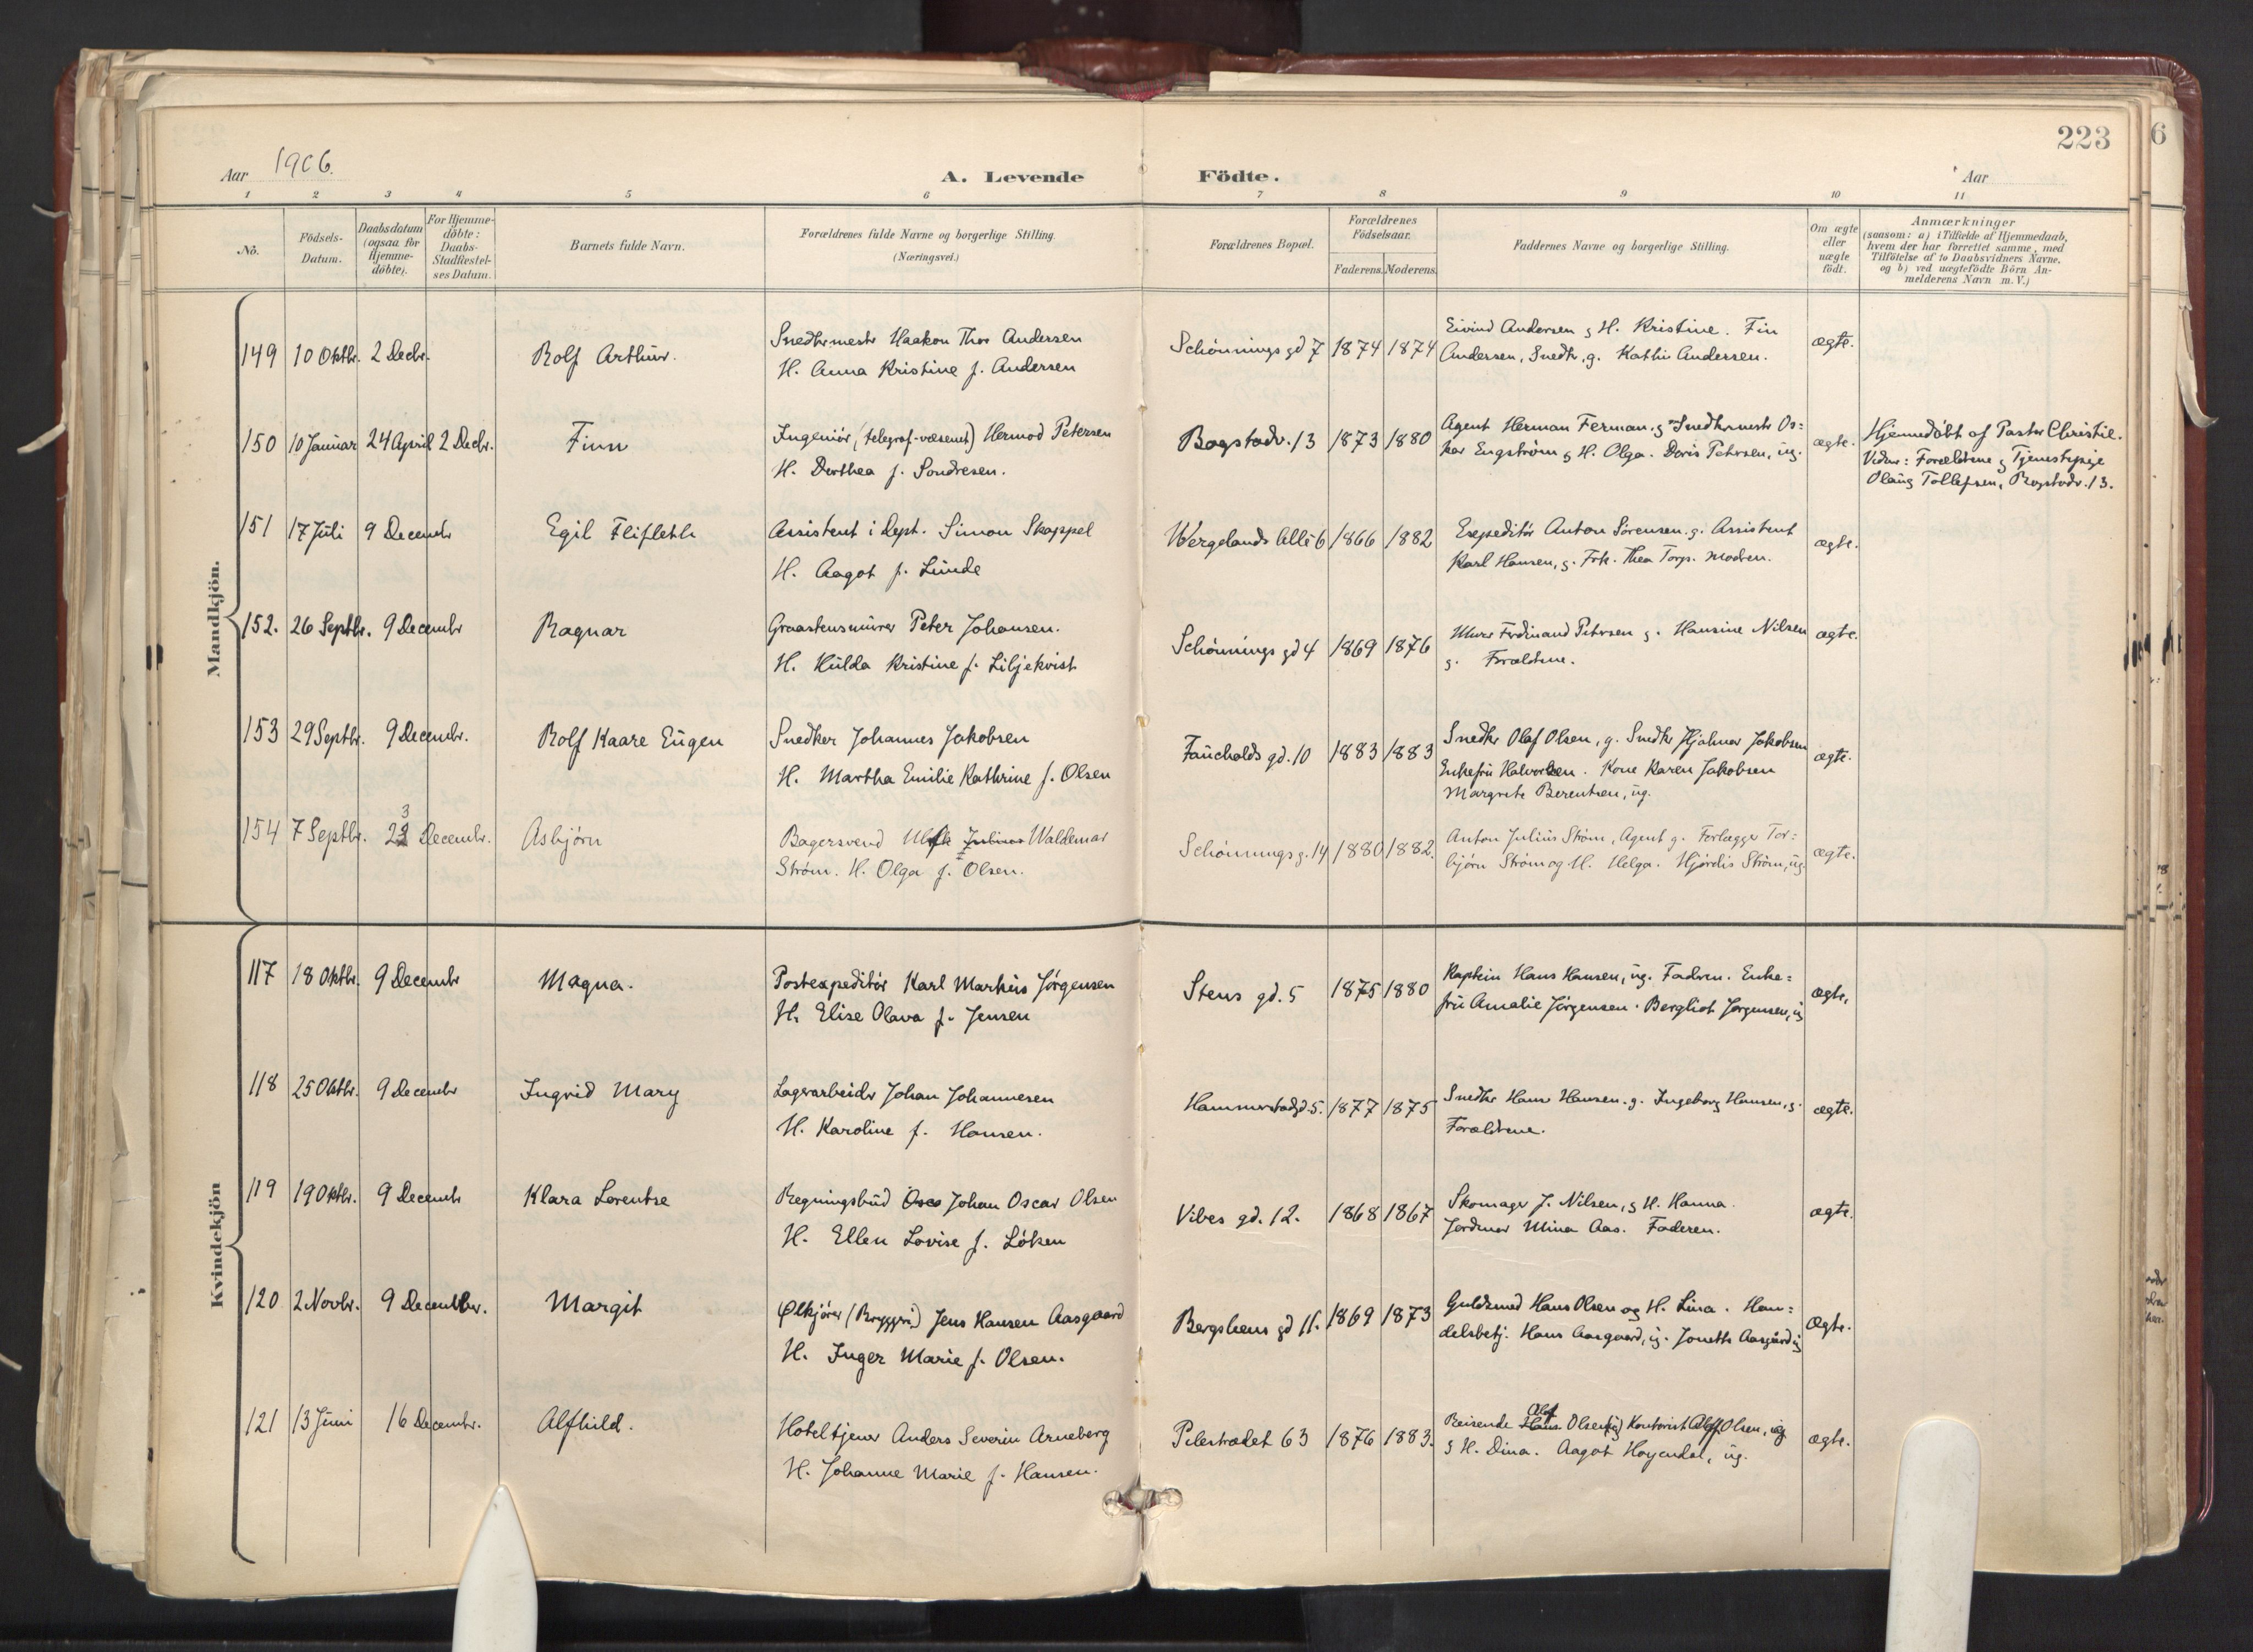 223
6
Aar 1906.
A. Levende Födte.
Aar
1 2 3 4 5 6 7 8 9 10 11
No.
Födsels-Datum.
Daabsdatum (ogsaa for Hjemme-döbte).
For Hjemme-döbte: Daabs-Stadfæstel-ses Datum.
Barnets fulde Navn.
Forældrenes fulde Navne og borgerlige Stilling.
(Næringsvei.)
Forældrenes Bopæl.
Forældrenes Födselsaar.
Faderens. Moderens.
Faddernes Navne og borgerlige Stilling.
Om ægte eller uægte födt.
Anmærkninger
(saasom: a) i Tilfælde af Hjemmedaab,
hvem der har forrettet samme, med
Tilföielse af to Daabsvidners Navne,
og b) ved uægtefödte Börn An-
melderens Navn m. V.)
Mandkjön.
149 10 Oktbr. 2 Decbr. Rolf Arthur.
Snedkermestr Haakon Thor Andersen
H. Anna Kristine f. Andersen
Schönnings gd 7 1874 1874
Eivind Andersen g H. Kristine. Fin
Andersen, Snedkr, g. Kathi Andersen.
ægte.
150 10 Januar 24 April 2 Decbr. Finn
Ingeniör (telegraf-væsenet) Hermod Petersen
H. Dorthea f. Sondresen.
Bogstadv. 13 1873 1880
Agent Herman Ferman. g Snedkrmestr Os=
kar Engström g H. Olga. Doris Petersen, ug.
ægte.
Hjemmedöbt af Pastor Christie.
Vidner: Forældrene g Tjenestepige
Olaug Tollefsen, Bogstadv. 13.
151 17 Juli 9 Decembr Egil Fliflethh
Assistent i Dept. Simon Skappel
H. Aagot f. Lunde
Wergelands Allé 6 1866 1882
Expeditör Anton Sörensen. g. Assistent
Karl Hansen, g. Frk. Thea Torp. Modren.
ægte.
152. 26 Septbr. 9 Decembr Ragnar
Graastensmurer Peter Johansen.
H. Hulda Kristine f. Liljekvist
Schönnings gd 4 1869 1876
Murer Ferdinand Petersen g. Hansine Nilsen
g. Forældrene.
ægte.
153 29 Septbr. 9 Decembr. Rolf Kaare Eugen
Snedker Johannes Jakobsen
H. Martha Emilie Kathrine f. Olsen
Fauchalds gd. 10 1883 1883
Snedkr Olaf Olsen, g. Snedkr Hjalmar Jakobsen
Enkefru Halvorsen. Kone Karen Jakobsen
Margrete Berentsen, ug.
ægte.
154 7 Septbr. 23 Decembr. Asbjörn
Bagersvend Julius Waldemar
Ström. H. Olga f. Olsen.
Schönnings g. 14 1880 1882.
Anton Julius Ström, Agent g. Forlægger Tor=
björn Ström og H. Helga. Hjördis Ström, ug
ægte.
Kvindekjön
117 18 Oktbr. 9 Decembr Magna.
Postexpeditör Karl Markus Jörgensen
H. Elise Olava f. Jensen
Stens gd. 5 1875 1880
Kaptein Hans Hansen, ug. Fadren. Enke=
fru Amalie Jörgensen. Bergliot Jörgensen, ug
ægte.
118 25 Oktbr. 9 Decembr Ingrid Mary
Lagerarbeidr Johan Johannesen
H. Karoline f. Hansen.
Hammerstadgd. 5. 1877 1875
Snedkr Hans Hansen. g. Ingeborg Hansen, g.
Forældrene.
ægte.
119 19 Oktbr. 9 Decembr Klara Lorentse
Regningsbud Osca Johan Oscar Olsen
H. Ellen Lovise f. Löken
Vibes gd. 12. 1868 1867
Skomager J. Nilsen, g H. Hanna.
Jordmor Mina Aas. Faderen.
ægte.
120 2 Novbr. 9 Decembr. Margit
Ølkjörer (Bryggeri) Jens Hansen Aasgaard
H. Inger Marie f. Olsen.
Bergsliens gd 11. 1869 1873
Guldsmed Hans Olsen og H. Lina. Han=
delsbetj. Hans Aasgaard, ug. Jonette Aasgård ug
Ægte.
121 13 Juni 16 Decembr. Alfhild.
Hoteltjener Anders Severin Arneberg
H. Johanne Marie f. Hansen.
Pilestrædet 63 1876 1883.
Reisende Hans Olaf Olsen (ug) Kontorist Olsen, ug
g H. Dina. Aagot Hoyendal, ug.
ægte.